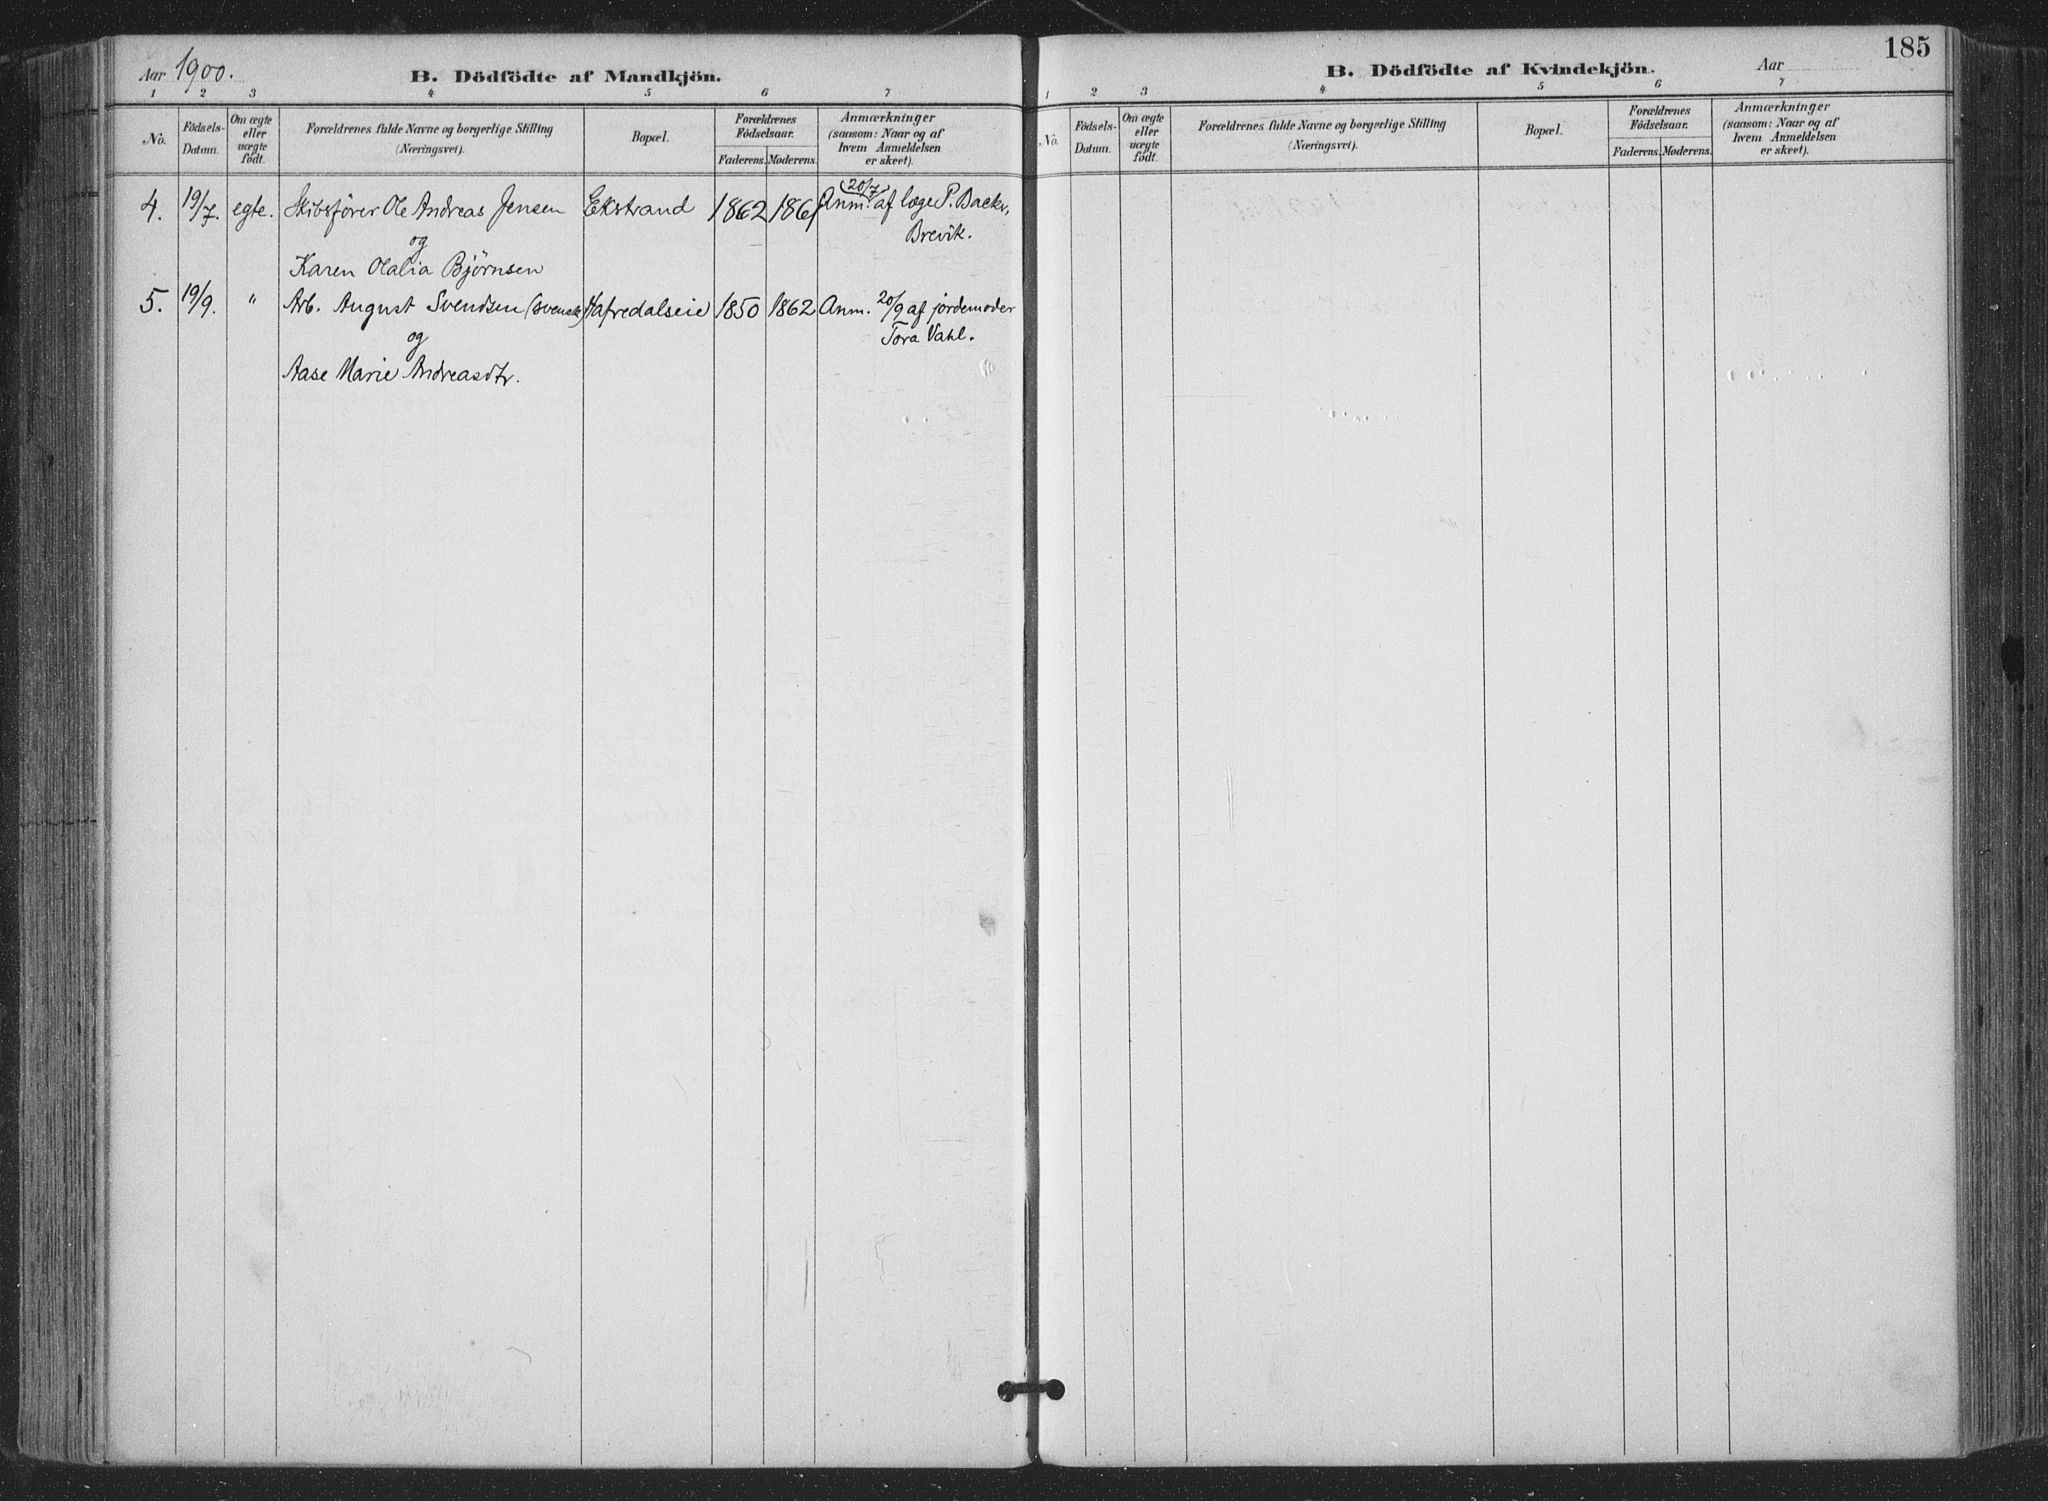 Aar 1900. B. Dödfödte af Mandkjön.
1 2 3 4 5 6 7
No. Födsels-Datum. Om ægte eller uægte födt. Forældrenes fulde Navne og borgerlige Stilling (Næringsvei). Bopæl. Forældrenes Födselsaar. Faderens. Moderens. Anmærkninger (saasom: Naar og af hvem Anmeldelsen er skeet).
4. 19/7. egte. Skibsfører Ole Andreas Jensen Ekstrand 1862 1861 Anm. 20/7 af læge P. Backer,
og Brevik.
Karen Olalia Bjørnsen
5. 19/9. " Arb. August Svendsen (svensk) Hafredalseie 1850 1862 Anm. 20/9 af jordemoder
og Tora Vahl.
Aase Marie Andreasdtr.
185
B. Dödfödte af Kvindekjön. Aar
1 2 3 4 5 6 7
No. Födsels-Datum. Om ægte eller uægte födt. Forældrenes fulde Navne og borgerlige Stilling (Næringsvei). Bopæl. Forældrenes Födselsaar. Faderens. Moderens. Anmærkninger (saasom: Naar og af hvem Anmeldelsen er skeet).